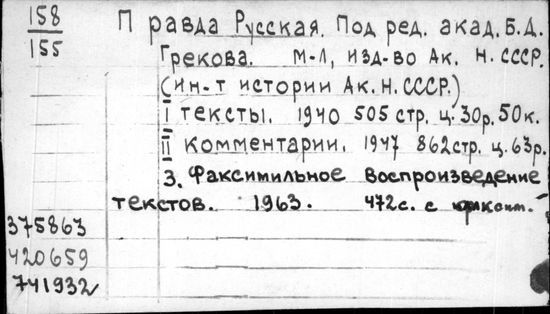 158
155
Правда Русская. Под ред. акад. Б.Д.
Грекова. М-Л, изд-во Ак. Н. СССР.
(ин-т истории Ак. Н. СССР.)
I тексты. 1940 505 стр. ц. 30р. 50к.
II комментарии. 1947 862стр. ц. 63р.
3. Факсимильное воспроизведение
текстов. 1963. 472с. с
375863
420659
741932